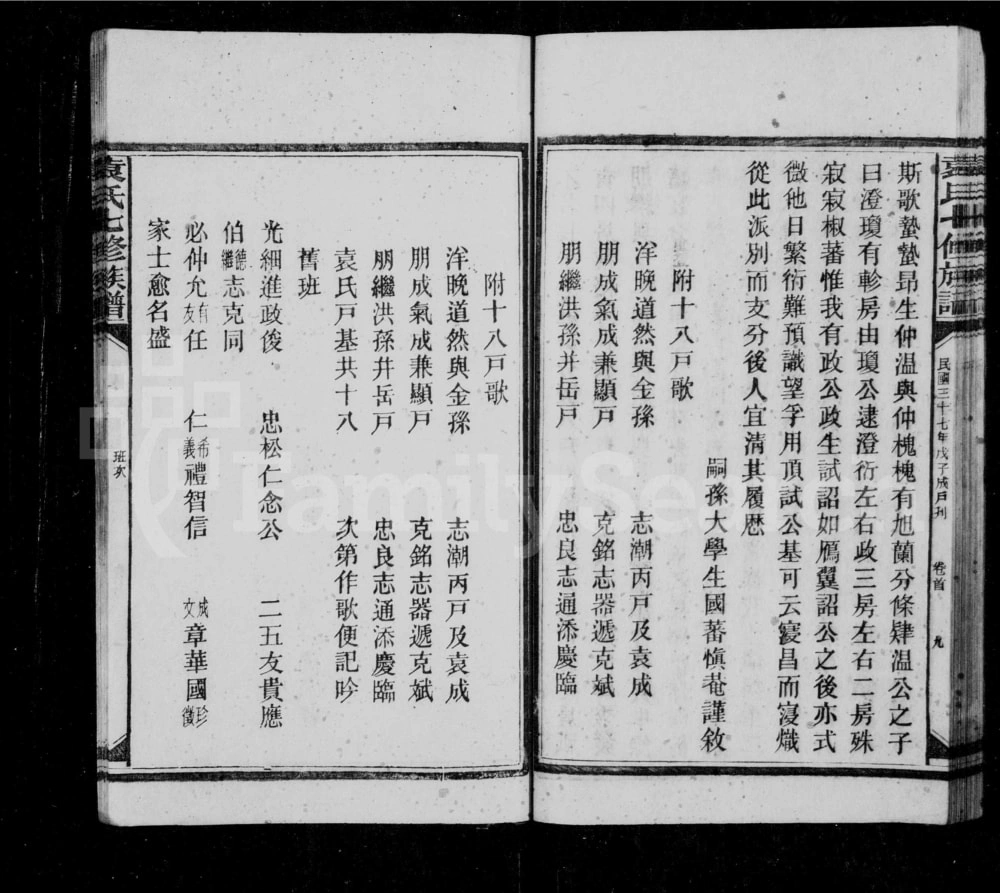 袁氏七修族譜
民國三十七年戊子歲月刊
卷首
九
斯歌蟄蟄昂生仲溫與仲槐槐有旭蘭分條肄溫公之子
曰澄瓊有軫房由瓊公逮澄衍左右政三房左右二房殊
寂寂椒蕃惟我有政公政生試詔如鴈翼詔公之後亦式
微他日繁衍難預識望孚用頂試公基可云寖昌而寖熾
從此派別而支分後人宜清其履歷
嗣孫大學生國蕃愼菴謹敘
附十八戸歌
洋晚道然與金孫 志潮丙戸及袁成
朋成氣成兼顯戸 克銘志器遞克斌
朋繼洪孫并岳戸 忠良志通添慶臨
附十八戸歌
洋晚道然與金孫 志潮丙戸及袁成
朋成氣成兼顯戸 克銘志器遞克斌
朋繼洪孫并岳戸 忠良志通添慶臨
袁氏戸基共十八 次第作歌便記吟
舊班
光細進政俊 忠松仁念公 二五友貴應
伯德繼志克同
必仲允有友任 仁希義禮智信 成文章華國珍徵
家士愈名盛
袁氏七修族譜
班次
FamilySearch